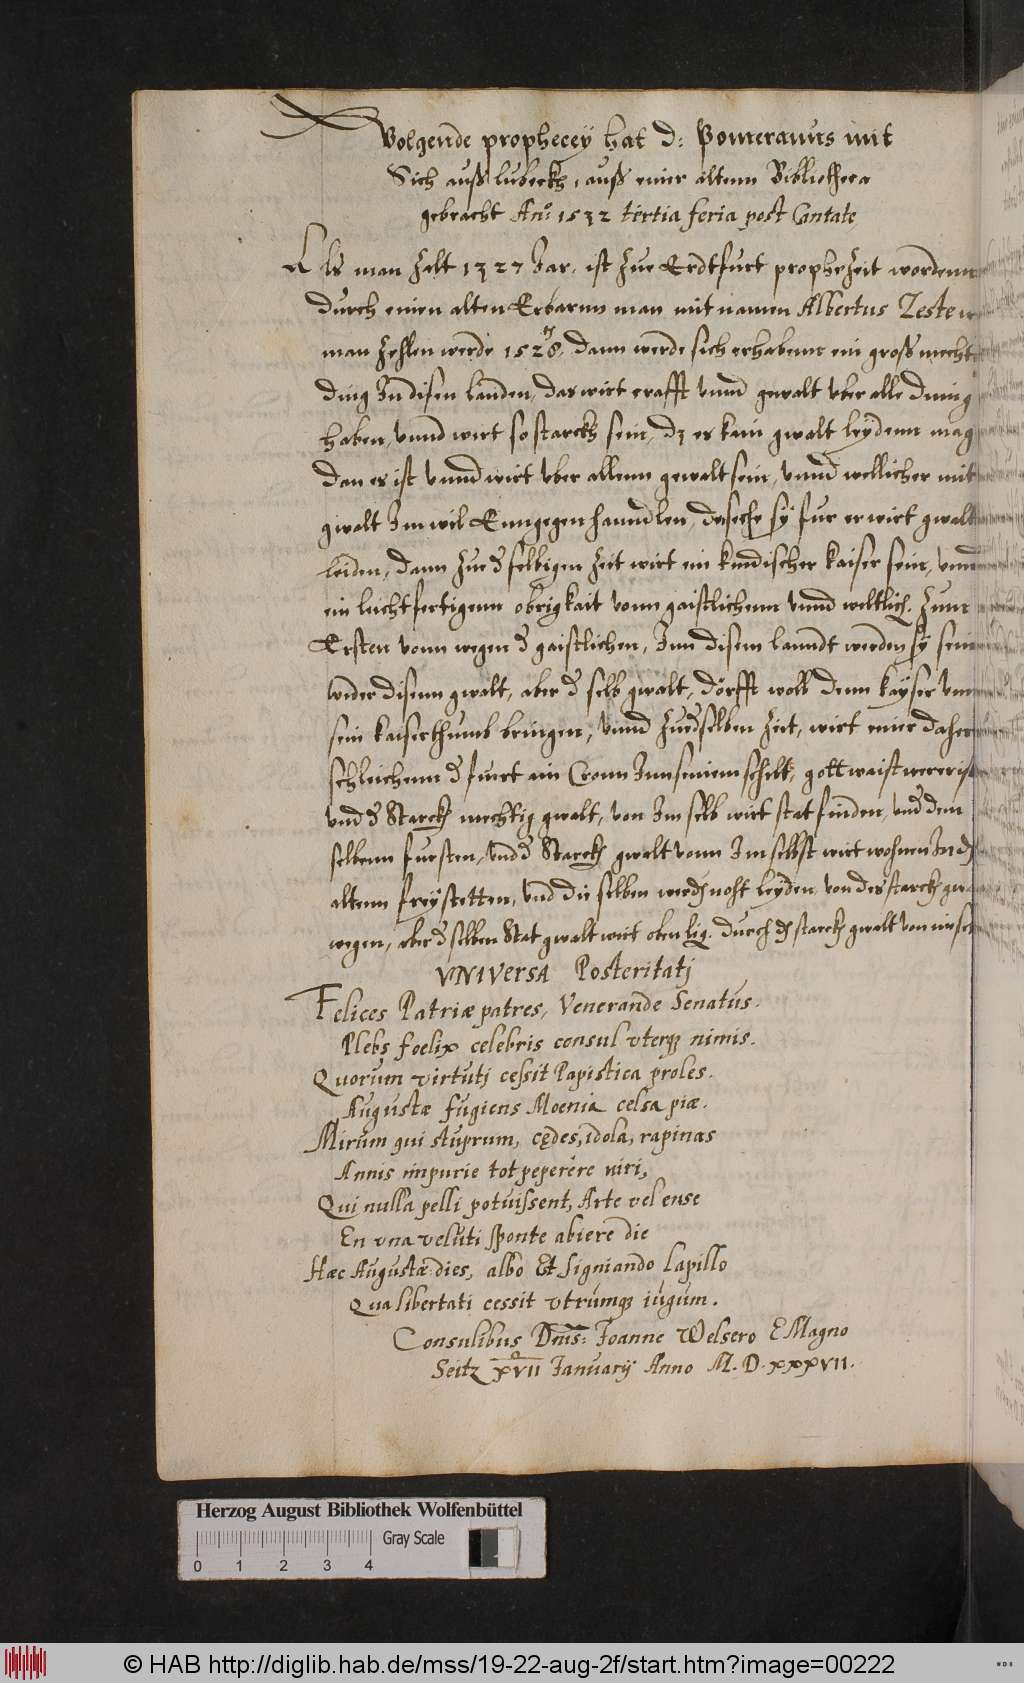 Volgende prophecey hat D: Pomeranus mit
Sich auß lubeckh, auß einer altenn Bibliotheca
gebracht Año 1532 tertia feria post Cantate
Als man Zelt 1327 Jar, ist Zue Erdtfurt propheZeit wordenn
durch einen alten Erbarnn man mit namen Albertus Zeste
man Zehlen werde 1528, dann werde sich erhabenn ein groß mecht
ding In disen landen, das wirt crafft vnnd gewalt vber alle ding
haben, vnnd wirt so starckh sein, dz es kain gwalt leydenn mag
dan es ist vnnd wirt vber allenn gewalt sein, vnnd wellicher mit
gwalt Im wil Enngegen hanndlen, der sech sy fur er wirt gwalt
leiden, dann Zue d selbigen Zeit wirt ein kindischer kaiser sein, vnnd
ein leichtfertigenn obrigkait vonn gaistlichenn vnnd weltlich. Zum
Ersten vonn wegen d gaistlichen, Inn disem lanndt werden sy sein
wider disenn gwalt, aber d selb gwalt, dörfft woll denn kayser vm
sein kaiserthumb bringen, vnnd Zu d selben Zeit, wirt einer daher
schleichenn d fuert ain Cronn Inn seinem schilt, gott waist wer er ist
vnd d Starckh mechtig gwalt, von Im selb wirt stat finden, vnd dem
selbenn fursten, vnd d Starckh gwalt vonn Im selbst wirt wohnen In d
altenn freystetten, vnd die selben werden noht leyden, von des starckh
wegen, aber d selben Stat gwalt wirt durch d starckh gwalt von
VNIVersA Posteritatj
Felices Patriæ patres, Venerande Senatus.
Plebs foelix celebris consul vterq; nimis.
Quorum virtutj cessit Papistica proles.
Augustæ fugiens Moenia celsa piæ.
Mirum qui stuprum, cędes, idola, rapinas
Annis impurie tot peperêre viri,
Qui nulla pelli potuissent, Arte vel ense
En vna velùti sponte abiere die
Hæc Augustæ dies, albo Et signiando lapillo
Qua libertati cessit vtrùmq; iùgum.
Consulibus Dnis: Joanne Welsero E Magno
Seitz XVII Januarij Anno M. D. XXXVII.
Herzog August Bibliothek Wolfenbüttel
Gray Scale
0 1 2 3 4
© HAB http://diglib.hab.de/mss/19-22-aug-2f/start.htm?image=00222